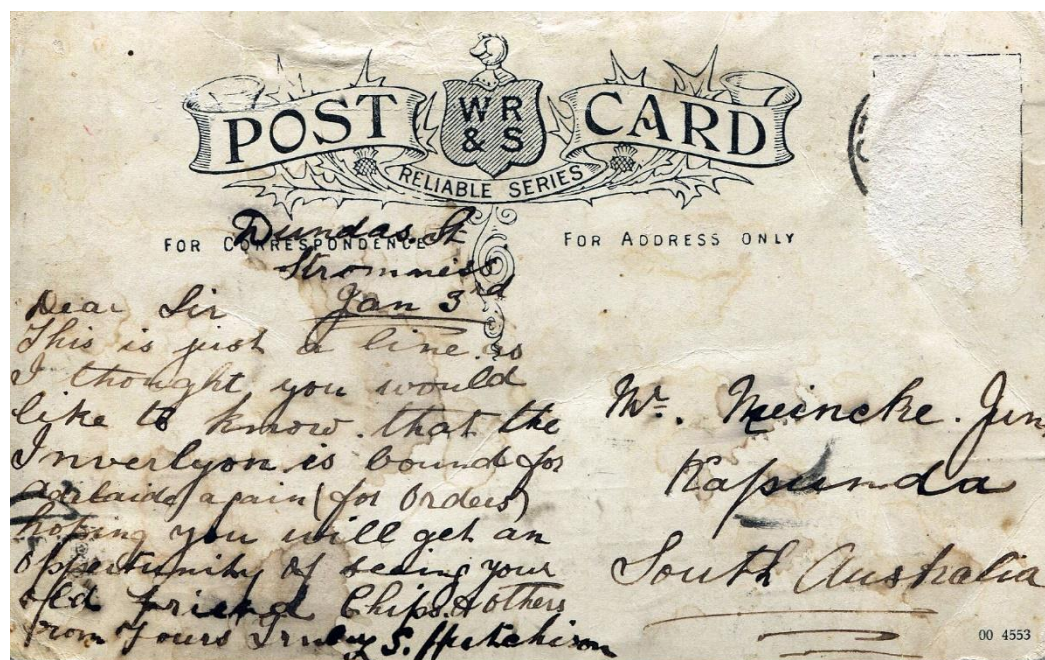 POST CARD
W R
& S
RELIABLE SERIES
FOR CORRESPONDENCE
FOR ADDRESS ONLY
Dundas. St
Stromness
Jan 3rd
Dear Sir
This is just a line as
I thought you would
like to know. that the
Inverlyon is bound for
Adelaide again (for Orders)
hoping you will get an
Oppertunity of seeing your
old friend Chips & others
from Yours Truley S. Hutchison
Mr. Meincke. Jun.
Kapunda
South Australia
00 4553